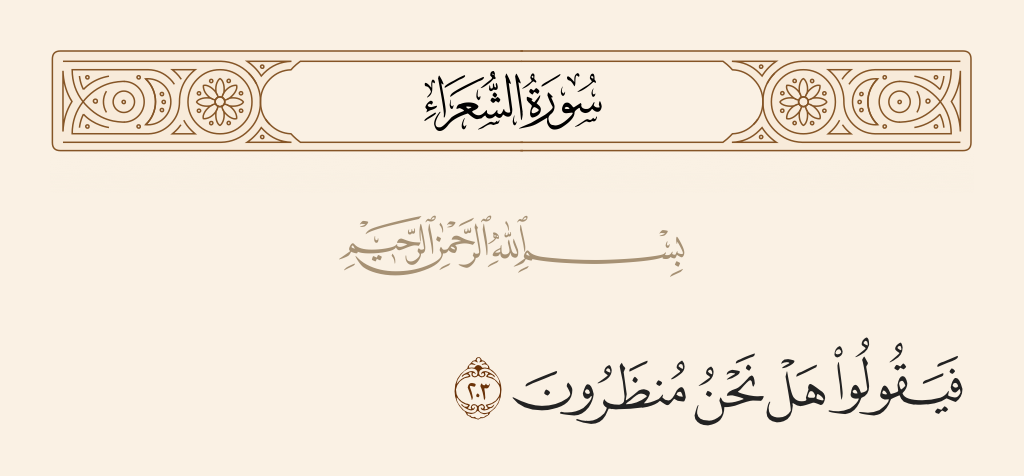 سُورَةُ الشُّعَرَاءِ
بِسْمِ ٱللَّهِ ٱلرَّحْمَٰنِ ٱلرَّحِيمِ
فَيَقُولُوا۟ هَلْ نَحْنُ مُنظَرُونَ ٢٠٣